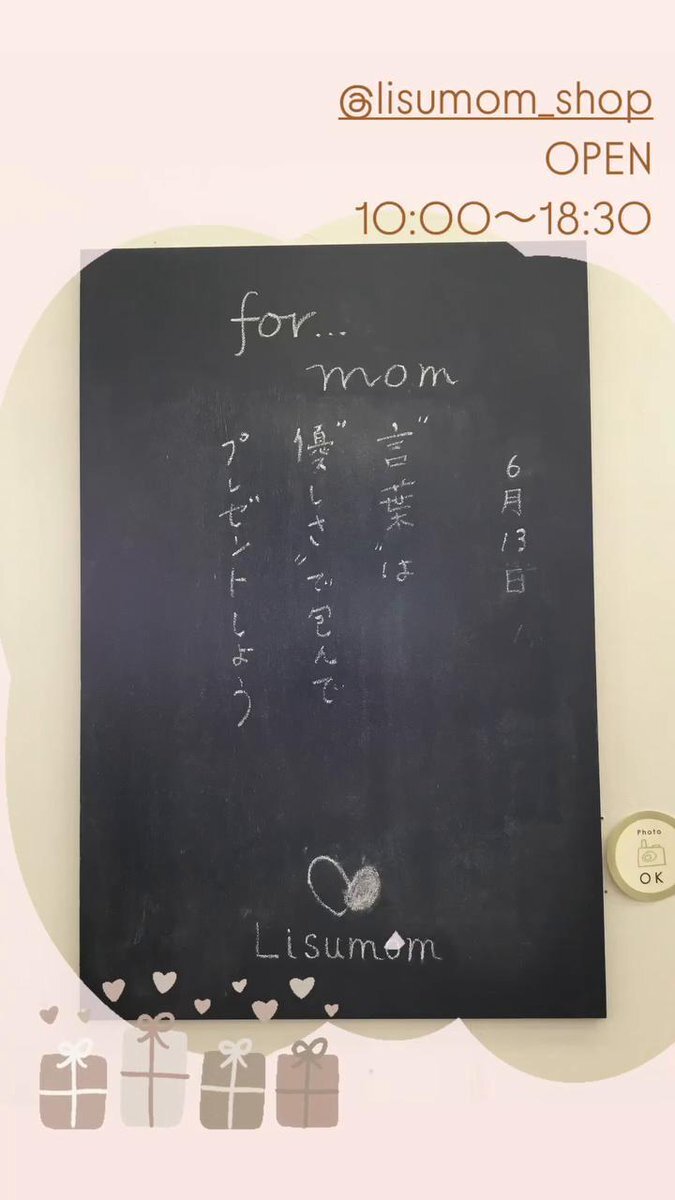 @lisumom_shop
OPEN
10:00～18:30
for...
mom
6月13日
"言葉"は
"優しさ"で包んで
プレゼントしよう
Photo
OK
Lisumom